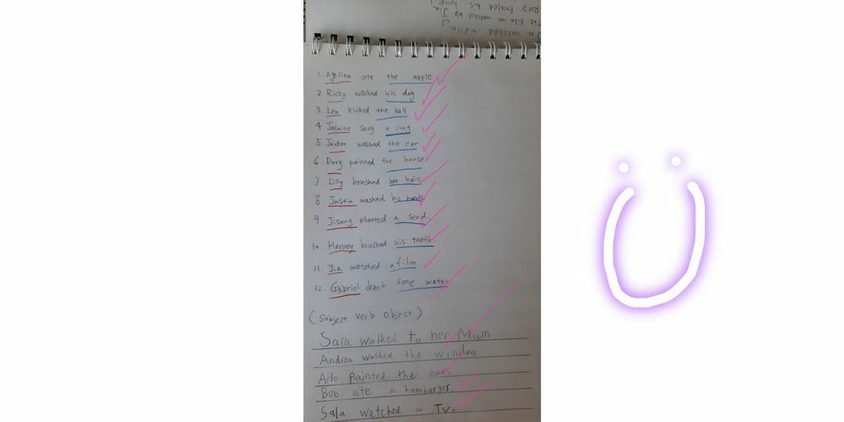 1. Agelina ate the apple
2 Ricky walked his dog
3 Leo kicked the ball
4 Jasmine sang a song
5 Jaden washed the car
6 Rory painted the house
7. Lilly brushed her hair
8. Justin washed his hands
9 Jisung planted a seed
10. Harvey brushed his teeth.
11. Jia watched a film
12. Gabriel drank some water
(subject verb object)
Sara walked to her Mum.
Andrea washed the window.
Arlo painted the car.
Bob ate a hamburger.
Sala watched a TV.
Ü